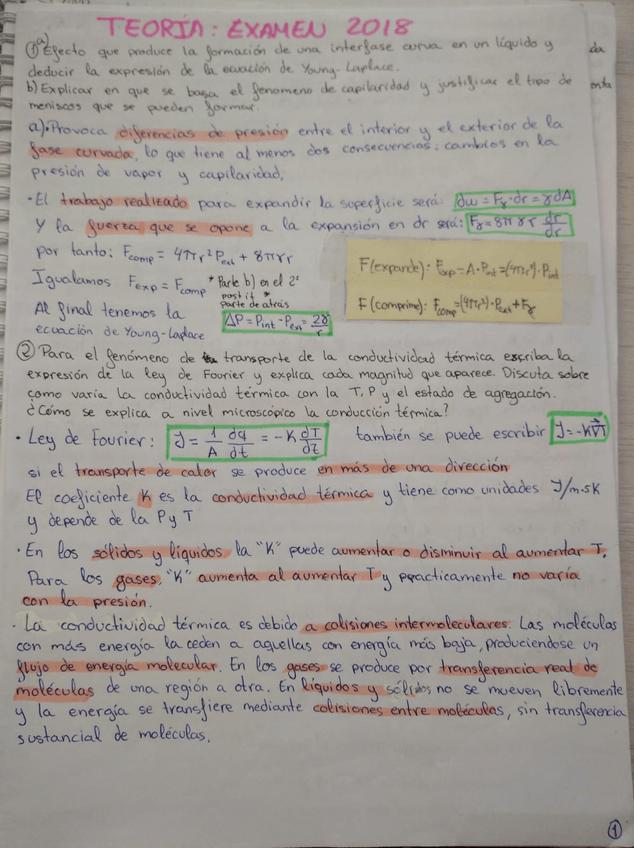 TEORÍA: EXAMEN 2018
① a) Efecto que produce la formación de una interfase curva en un líquido y
deducir la expresión de la ecuación de Young-Laplace.
b) Explicar en que se basa el fenomeno de capilaridad y justificar el tipo de
meniscos que se pueden formar.
a)· Provoca diferencias de presión entre el interior y el exterior de la
fase curvada, lo que tiene al menos dos consecuencias: cambios en la
presión de vapor y capilaridad.
· El trabajo realizado para expandir la superficie será: dw = Fγ·dr = γdA
Y la fuerza que se opone a la expansión en dr será: Fγ = 8πγr dr/dr
por tanto: Fcomp = 4πr² Pext + 8πγr
Igualamos Fexp = Fcomp * Parte b) en el 2º
post it *
parte de atrás
Al final tenemos la
ecuación de Young-Laplace ΔP = Pint - Pext = 2γ/r
F(expande): Fexp = A·Pint = (4πr²)·Pint
F(comprime): Fcomp = (4πr²)·Pext + Fγ
② Para el fenómeno de transporte de la conductividad térmica escriba la
expresión de la ley de Fourier y explica cada magnitud que aparece. Discuta sobre
como varía la conductividad térmica con la T, P y el estado de agregación.
¿Cómo se explica a nivel microscópico la conducción térmica?
· Ley de Fourier: J = 1/A dq/dt = -K dT/dz también se puede escribir J = -K∇T
si el transporte de calor se produce en más de una dirección
El coeficiente K es la conductividad térmica y tiene como unidades J/m·s·K
y depende de la P y T
· En los sólidos y líquidos la "K" puede aumentar o disminuir al aumentar T.
Para los gases, "K" aumenta al aumentar T y practicamente no varía
con la presión.
· La conductividad térmica es debido a colisiones intermoleculares. Las moléculas
con más energía la ceden a aquellas con energía más baja, produciendose un
flujo de energía molecular. En los gases se produce por transferencia real de
moléculas de una región a otra. En líquidos y sólidos no se mueven libremente
y la energía se transfiere mediante colisiones entre moléculas, sin transferencia
sustancial de moléculas.
①